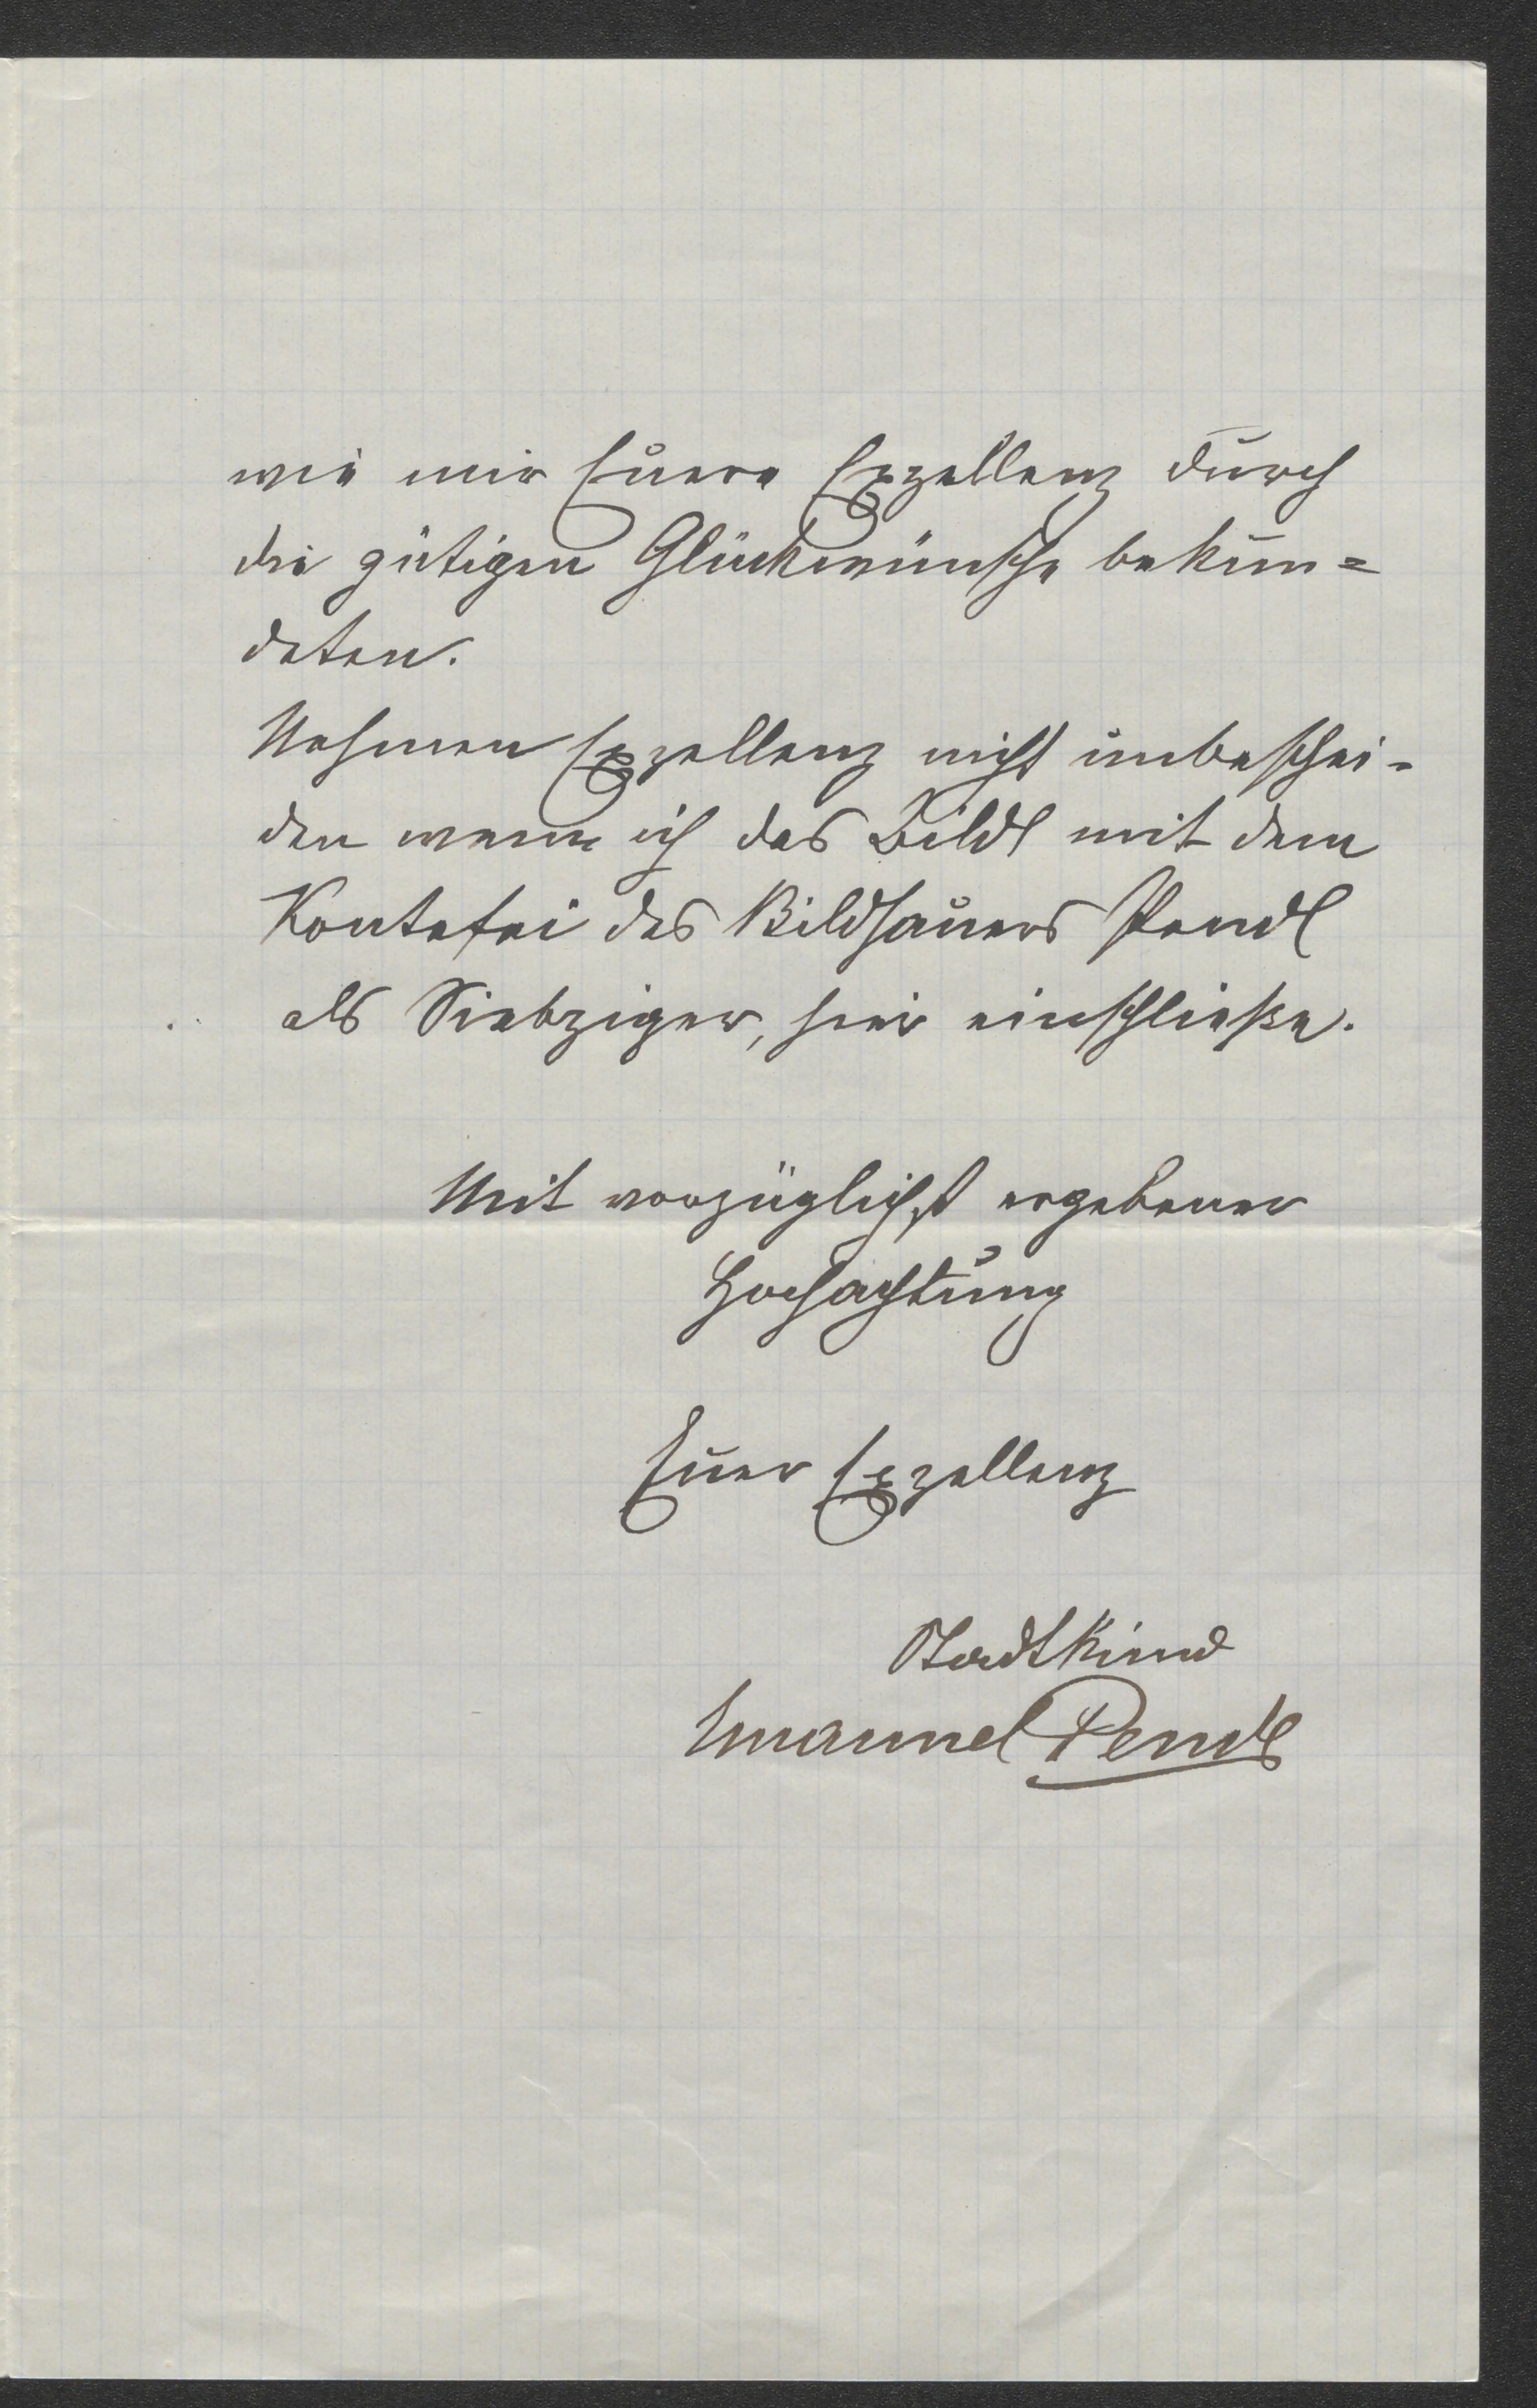 wie mir Euere Exzellenz durch
die gütigen Glückwünsche bekun=
deten.
Nehmen Exzellenz nicht unbeschei-
den wenn ich das Bildl mit dem
Kontefei des Bildhauers Pendl
als Siebziger, hier einschließe.
Mit vorzüglichst ergebener
Hochachtung
Euer Exzellenz
Stadtkind
Emanuel Pendl